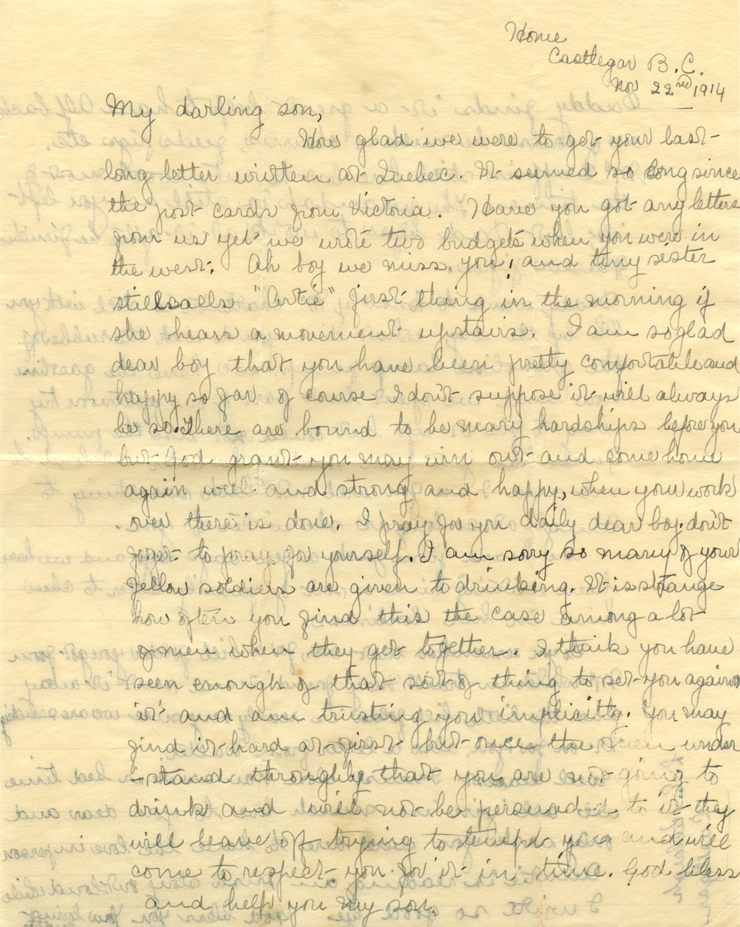 Home
Castlegar B.C.
Nov 22nd, 1914
My darling son,
How glad we were to get your last
long letter written at Quebec. It seemed so long since
the post cards from Victoria. Have you got any letters
from us yet we wrote two budgets when you were in
the west. Ah boy we miss you! and tiny sister
still calls "Artie" first thing in the morning if
she hears a movement upstairs. I am so glad
dear boy that you have been pretty comfortable and
happy so far of course I don't suppose it will always
be so. There are bound to be many hardships before you
but God grant you may win out and come home
again well and strong and happy, when your work
over there is done. I pray for you daily dear boy. don't
forget to pray for yourself. I am sorry so many of your
fellow soldiers are given to drinking. It is strange
how often you find this the case among a lot
of men when they get together. I think you have
seen enough of that sort of thing to set you against
it and am trusting you implicitly. You may
find it hard at first but once the men under
-stand throughly that you are not going to
drink and will not be persuaded to it they
will leave off trying to tempt you and will
come to respect you for it in time. God bless
and help you my son.